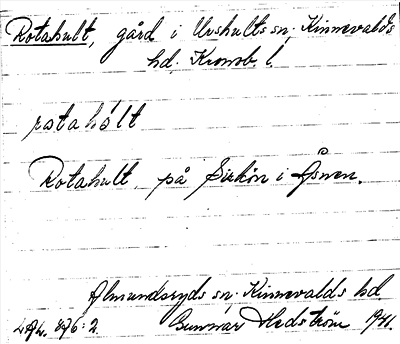 Rotahult, gård i Urshults sn, Kinnevalds
hd, Kronob. l.
rotahólt
Rotahult på Sirkön i Åsnen.
Almundsryds sn. Kinnevalds hd.
Gunnar Hedström 1941.